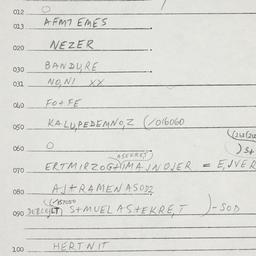 012 O
013 AFMT EMES
020 NEZER
030 BANDURE
031 NO,NI XX
040 FO+FE
050 KALUPEDEMNO,Z (✓016060
060 O
070 ERTMIRZOG+IMAJNOJER = EJVER
080 AJ+RAMENASO
090 S+MUELAS+EKRE,T )-SOD
100 HERTNIT